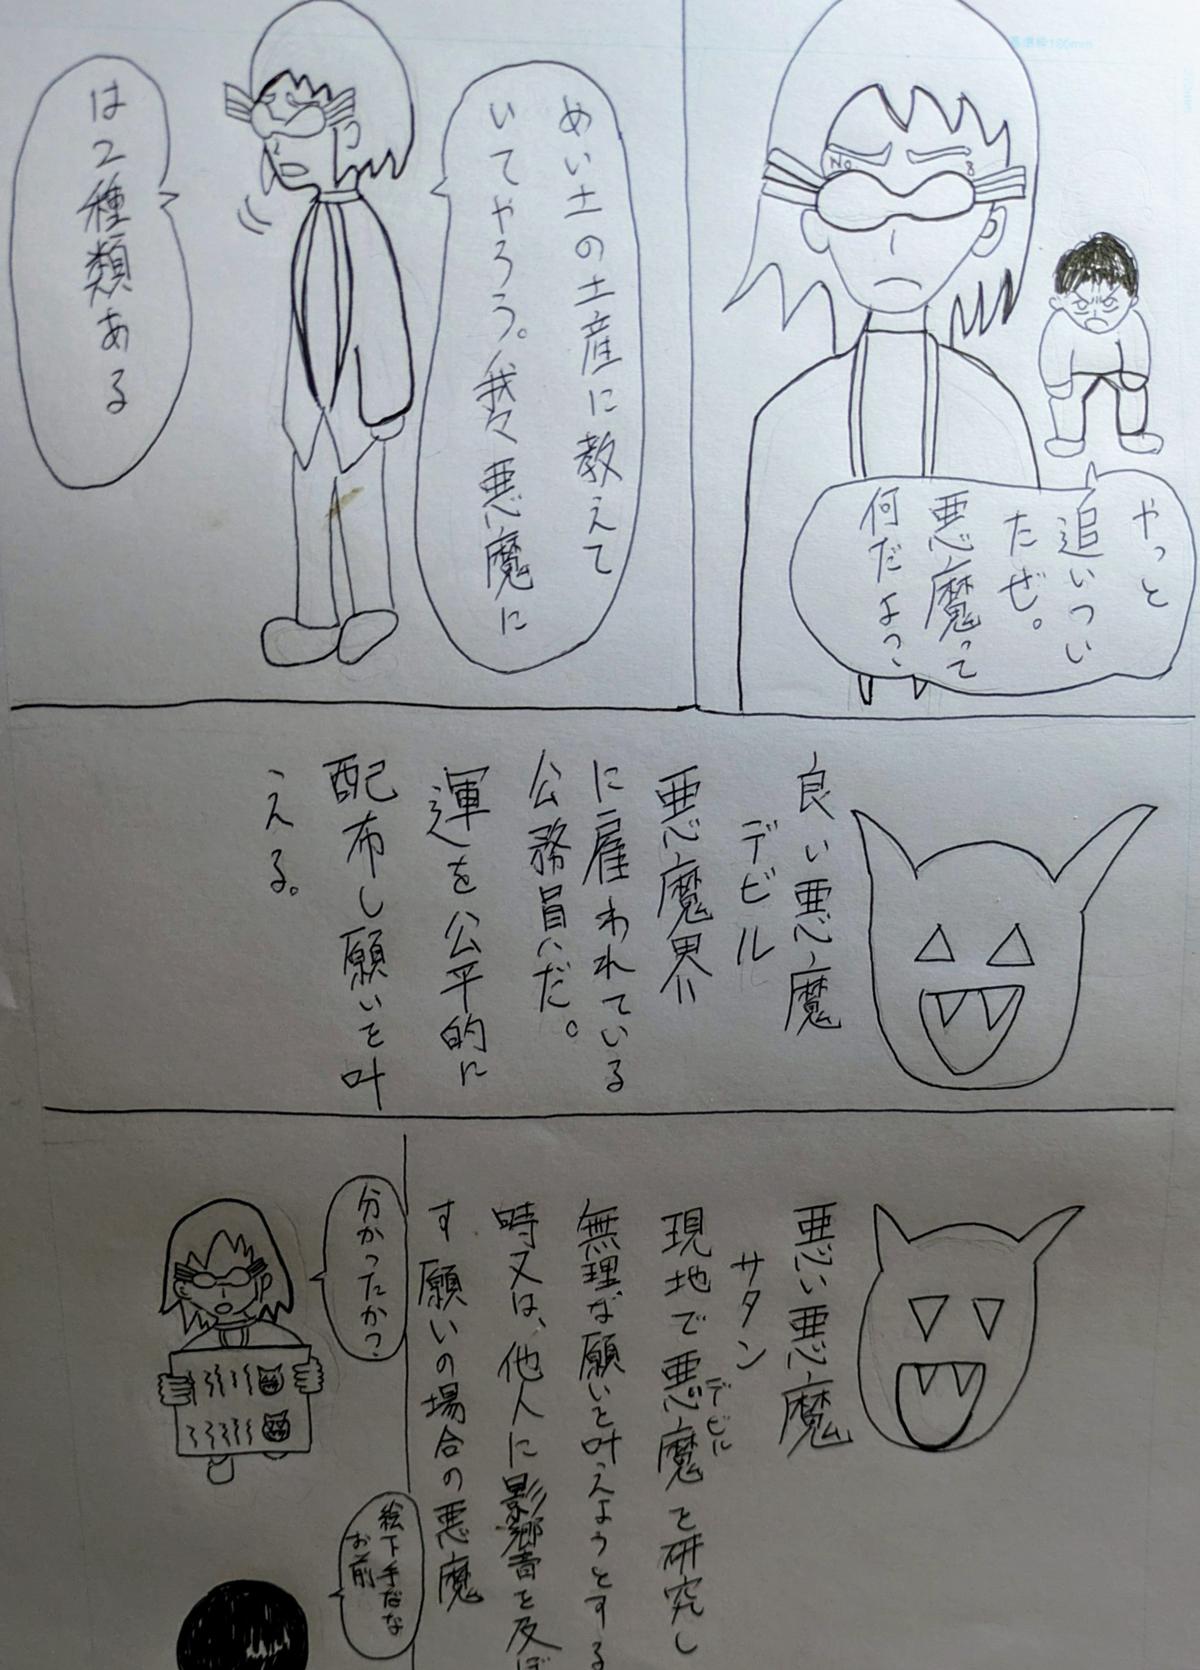 やっと
追いつい
たぜ。
悪魔って
何だよ?
No
8
めい土の土産に教えて
いてやろう。我々悪魔に
は2種類ある
良い悪魔
デビル
悪魔界
に雇われている
公務員だ。
運を公平的に
配布し願いを叶
える。
悪い悪魔
サタン
現地で悪魔を研究し
デビル
無理な願いを叶えようとする
時又は、他人に影響を及ぼ
す願いの場合の悪魔
分かったか?
絵下手だな
お前